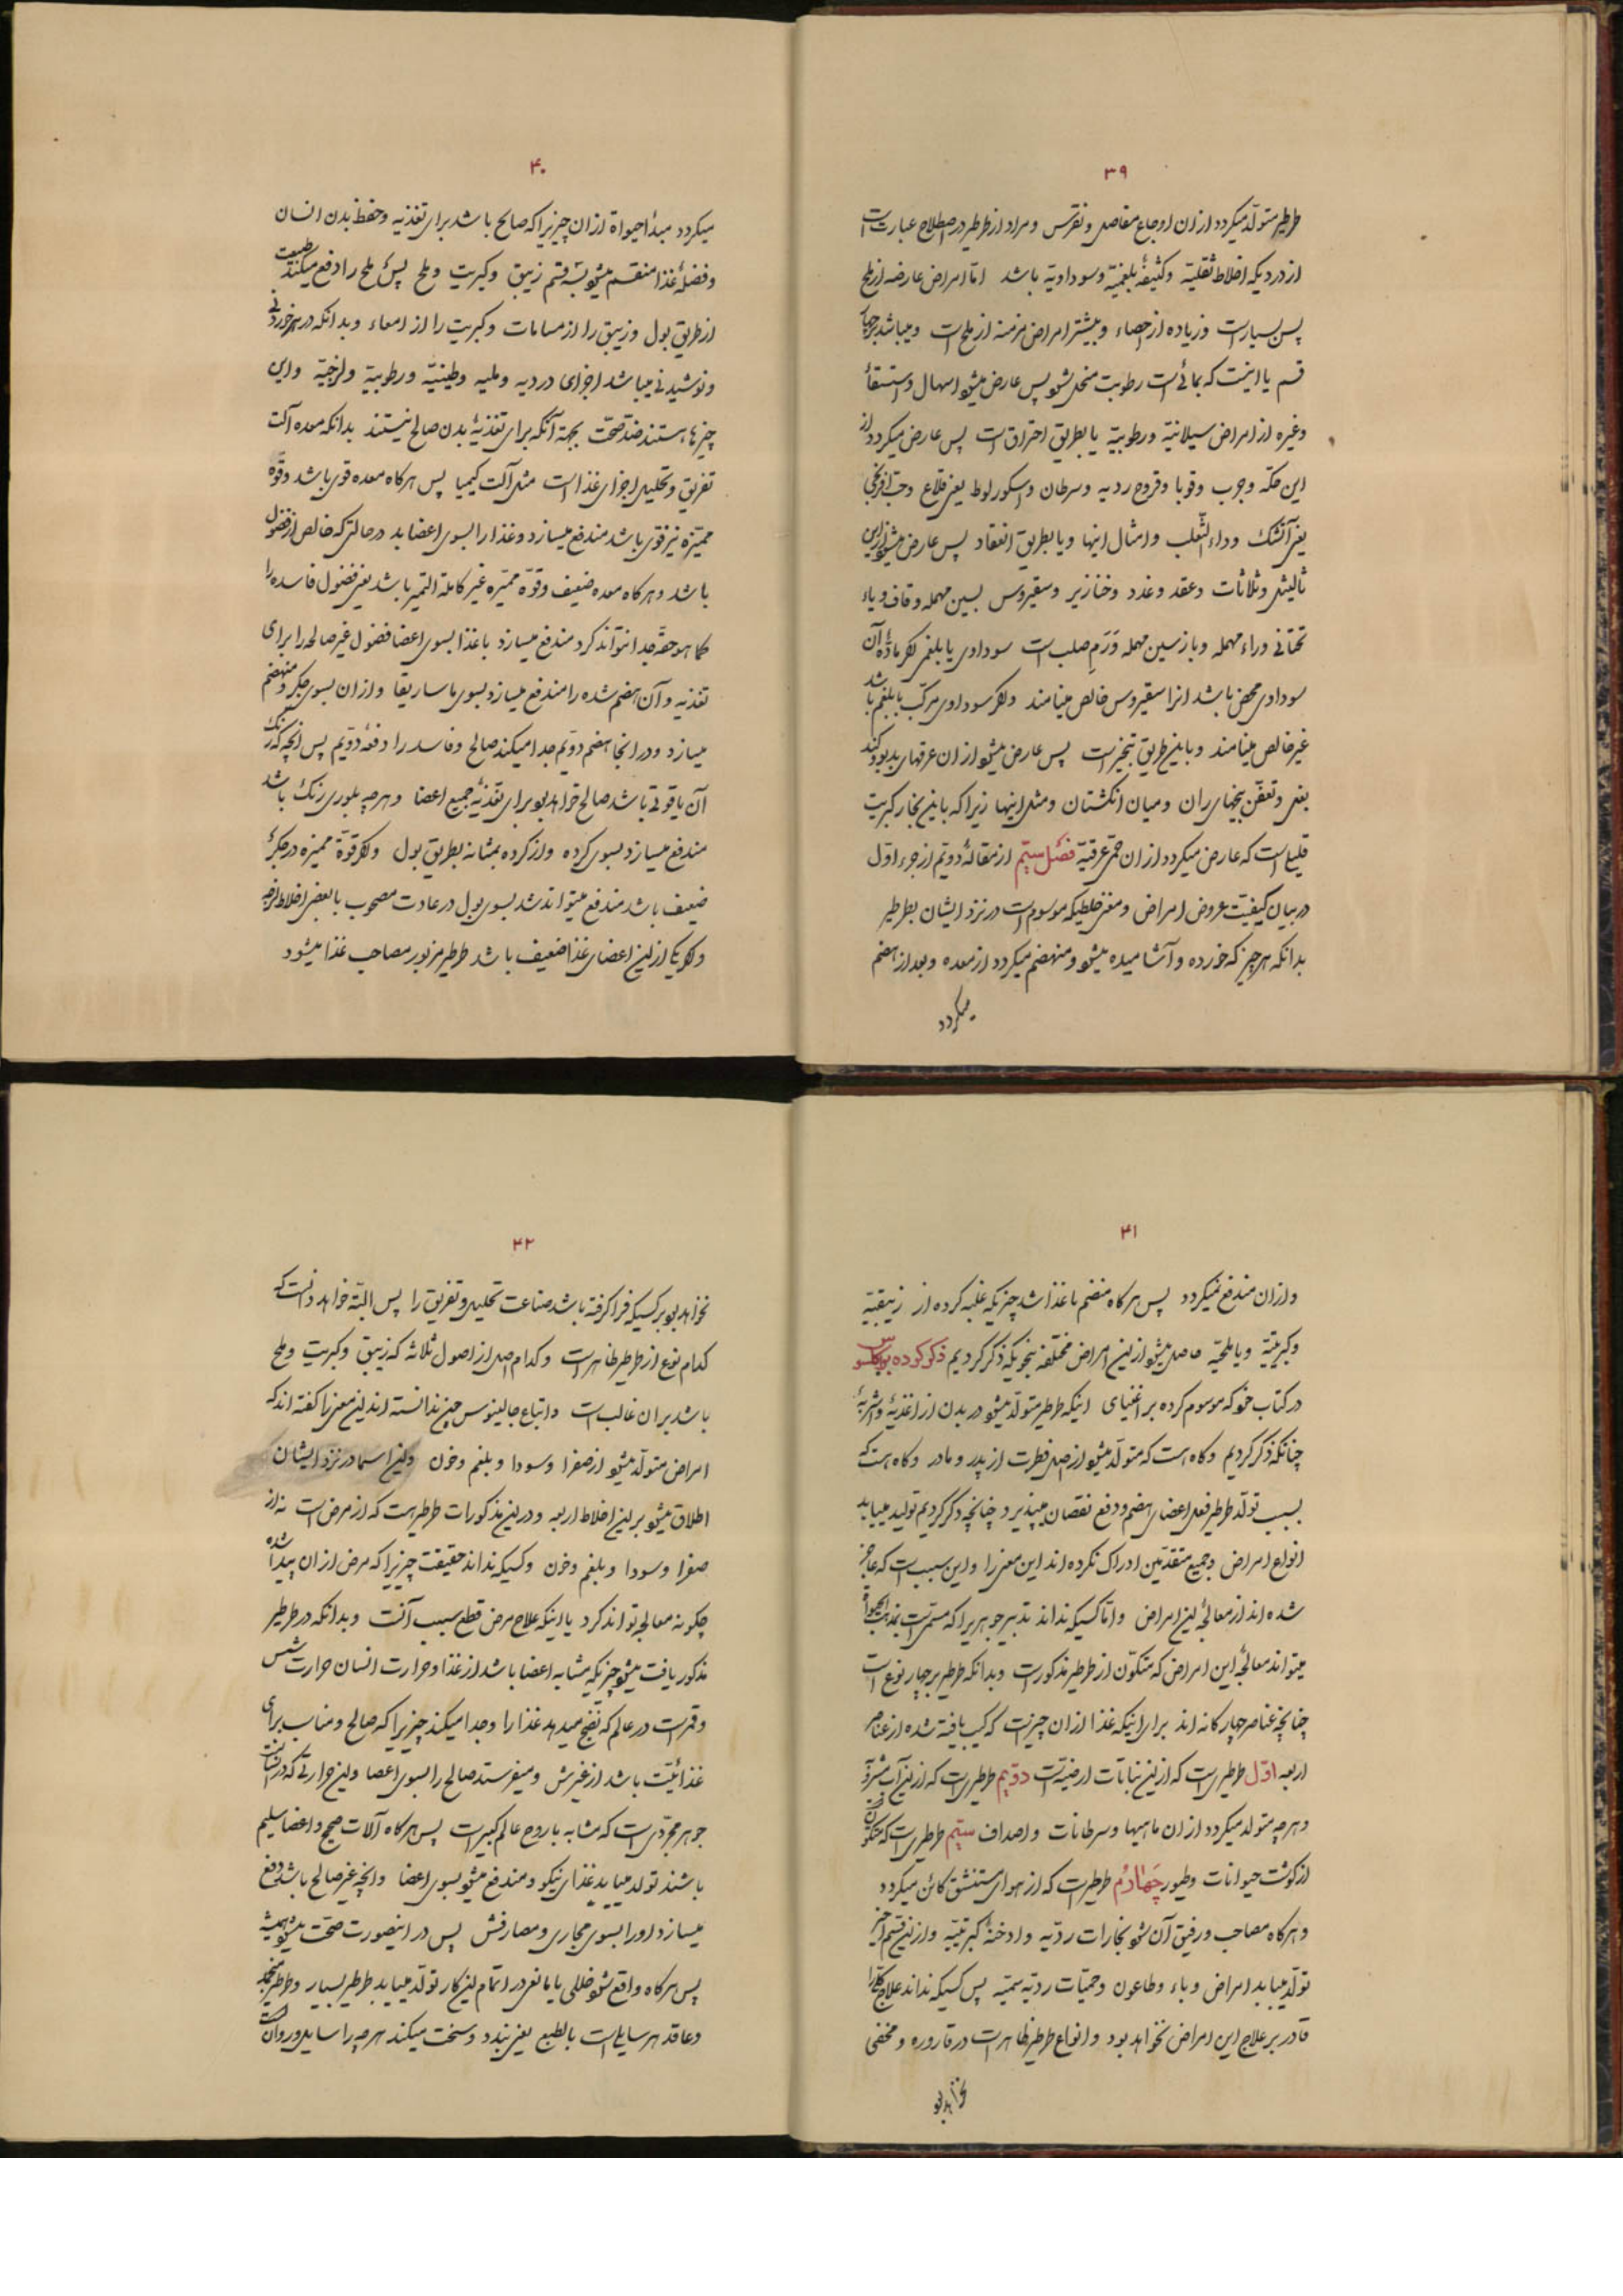 ۳۹
طرطیر متولد میکردد ازان اوجاع مفاصل و نقرس و مراد از طرطیر در اصطلاح عبارتست
از دردیکه اخلاط ثقلیّة وکثیفهٔ بلغمیّة وسوداویّة باشد امّا امراض عارضه از ملح
پس بسیارست وزیاده از احصاء وبیشتر امراض مزمنه از ملح است ومیباشد برچهار
قسم یا اینست که بمائیت رطوبت منحل شود پس عارض میشود اسهال واستسقا
وغیره از امراض سیلانیّه ورطوبیّه یا بطریق احتراقست پس عارض میکردد از
این حکّه وجرب وقوبا وقروح ردیه وسرطان واسکوربوط یعنی قلاع وحب افرنجی
یعنی آتشک وداء الثّعلب وامثال اینها ویا بطریق انعقاد پس عارض میشود ازین
ثالیل وثلاثات وعقد وغدد وخنازیر وسقیروس بسین مهمله وقاف ویاء
تحتانی وراء مهمله وباز سین مهمله وَرَم صلب است سوداوی یا بلغمی اکر مادّهٔ آن
سوداوی محض باشد انرا سقیروس خالص مینامند واکر سوداوی مرکّب با بلغم باشد
غیر خالص مینامند ویا بطریق تبخیرست پس عارض میشود ازان عرقهای بدبو وکند
بغل وتعفّن بیخهای ران ومیان انکشتان ومثل اینها زیرا که با این بخار کبریت
قلیل است که عارض میکردد ازان حمی عرقیّه فصل سیّم از مقالهٔ دویّم از جزء اوّل
در بیان کیفیّت عروض امراض ومعنی خلطیکه موسوم است در نزد ایشان بطرطیر
بدانکه هر چیز که خورده وآشامیده میشود ومنهضم میکردد از معده وبعد از هضم
میکردد
۴۰
میکردد مبدأ حیواة ازان چیزیرا که صالح باشد برای تغذیه وحفظ بدن انسان
وفضلهٔ غذا منقسم میشود بسه قسم زیبق وکبریت وملح پس ملح را دفع میکند طبیعت
از طریق بول وزیبق را از مسامات وکبریت را از امعاء وبدانکه در هر خوردنی
ونوشیدنی میباشد اجزای دردیه وملیه وطینیّة ورطوبیّة ولزجیّة واین
چیزها هستند ضدّ صحّت بجهة آنکه برای تغذیهٔ بدن صالح نیستند بدانکه معده آلت
تفریق وتحلیل اجزای غذاست مثل آلت کیمیا پس هرکاه معده قوی باشد وقوّة
ممیّزه نیز قوی باشد مندفع میسازد وغذا را بسوی اعضا بد درحالتی که خالص از فضول
باشد وهرکاه معده ضعیف وقوّة ممیّزه غیر کاملة التمیز باشد یعنی فضول فاسده را
کما هو حقّه جدا نتواند کرد مندفع میسازد با غذا بسوی اعضا فضول غیر صالحه را برای
تغذیه وآن هضم شده را مندفع میسازد بسوی ماساریقا وازان بسوی جکر ومنهضم
میسازد ودر انجا هضم دویّم جدا میکند صالح وفاسد را دفعهٔ دویّم پس انچه که رنک
آن یاقوتی باشد صالح خواهد بود برای تغذیهٔ جمیع اعضا وهرچه بلوری رنک باشد
مندفع میسازد بسوی کرده واز کرده بمثانه بطریق بول واکر قوّة ممیزه در جکر
ضعیف باشد مندفع میتواند شد بسوی بول در عادت مصحوب با بعضی اخلاط لزجه
واکر یکی از این اعضای غذا ضعیف باشد طرطیر مزبور مصاحب غذا میشود
۴۱
وازان مندفع نمیکردد پس هرکاه منضم با غذا شد چیزیکه غلبه کرده از زیبقیّه
وکبریتیّه ویا ملحیّه حاصل میشود از این امراض مختلفه بنحویکه ذکر کردیم ذکر کرده
در کتاب خود که موسوم کرده بر اغنیای اینکه طرطیر متولّد میشود در بدن از اغذیهٔ واشربهٔ
چنانکه ذکر کردیم وکاه است که متولّد میشود از اصل فطرت از پدر ومادر وکاه است که
بسبب تولّد طرطیر فعل اعضای هضم ودفع نقصان میپذیرد چنانچه ذکر کردیم تولید مییابد
انواع امراض وجمیع متقدّمین ادراک نکرده اند این معنی را واین سبب است که عاجز
شده اند از معالجهٔ این امراض وامّا کسیکه نداند تدبیر جوهریرا که مسمّی است
میتواند معالجهٔ این امراض که متکوّن از طرطیر مذکورست وبدانکه طرطیر بر چهار نوع است
چنانچه عناصر چهارکانه اند برای اینکه غذا ازان چیزیست که ترکیب یافته شده از عناصر
اربعه اوّل طرطیریست که ازین نباتات ارضیّه است دویّم طرطیریست که ازین آب میشود
وهرچه متولد میکردد ازان ماهیها وسرطانات واصداف سیّم طرطیریست که متکوّن
از کوشت حیوانات وطیور چهارُم طرطیریست که از هوای مستنشق کائن میکردد
وهرکاه مصاحب ورفیق آن شود بخارات ردیّه وادخنهٔ کبریتیّه وازین قسم اخیر
تولّد مییابد امراض وباء وطاعون وحمیّات ردیّه سمیّه پس کسیکه نداند علاج کلّ را
قادر بر علاج این امراض نخواهد بود وانواع طرطیر ظاهرست در قاروره ومخفی
نخواهد بود
۴۲
نخواهد بود بر کسیکه فرا کرفته باشد صناعت تحلیل وتفریق را پس البتّه خواهد دانست که
کدام نوع از طرطیر ظاهرست وکدام اصل از اصول ثلاثه که زیبق وکبریت وملح
باشد بران غالب است واتباع جالینوس چون ندانسته اند این معنی را کفته اند که
امراض متولّد میشود از صفرا وسودا وبلغم وخون واین اسما در نزد ایشان
اطلاق میشود برین اخلاط اربعه ودر این مذکورات طرطیر هست که از مرض است نه از
صفرا وسودا وبلغم وخون وکسیکه نداند حقیقت چیزیرا که مرض ازان پیدا شده
چکونه معالجه تواند کرد یا اینکه علاج مرض قطع سبب آنست وبدانکه در طرطیر
مذکور یافت میشود چیزیکه مشابه اعضا باشد از غذا وحرارت انسان حرارت شمس
وقمرست در عالم که نضج میدهد غذا را وجدا میکند چیزیرا که صالح ومناسب برای
غذائیّت باشد از غیرش ومیفرستد صالح را بسوی اعضا واین حرارتی که در انسانست
جوهر مجرّدیست که مشابه با روح عالم کبیرست پس هرکاه آلات صحیح واعضا سلیم
باشند تولد مییابد غذای نیکو ومندفع میشود بسوی اعضا وانچه غیر صالح باشد دفع
میسازد او را بسوی مجاری ومصارفش پس در اینصورت صحّت میشود همیشه
پس هرکاه واقع شود خللی یا مانعی در اتمام این کار تولّد مییابد طرطیر بسیار وطرطیر منجمد
وعاقد هر سایل است بالطبع یعنی بندد وسخت میکند هرچه را سایل وروانست